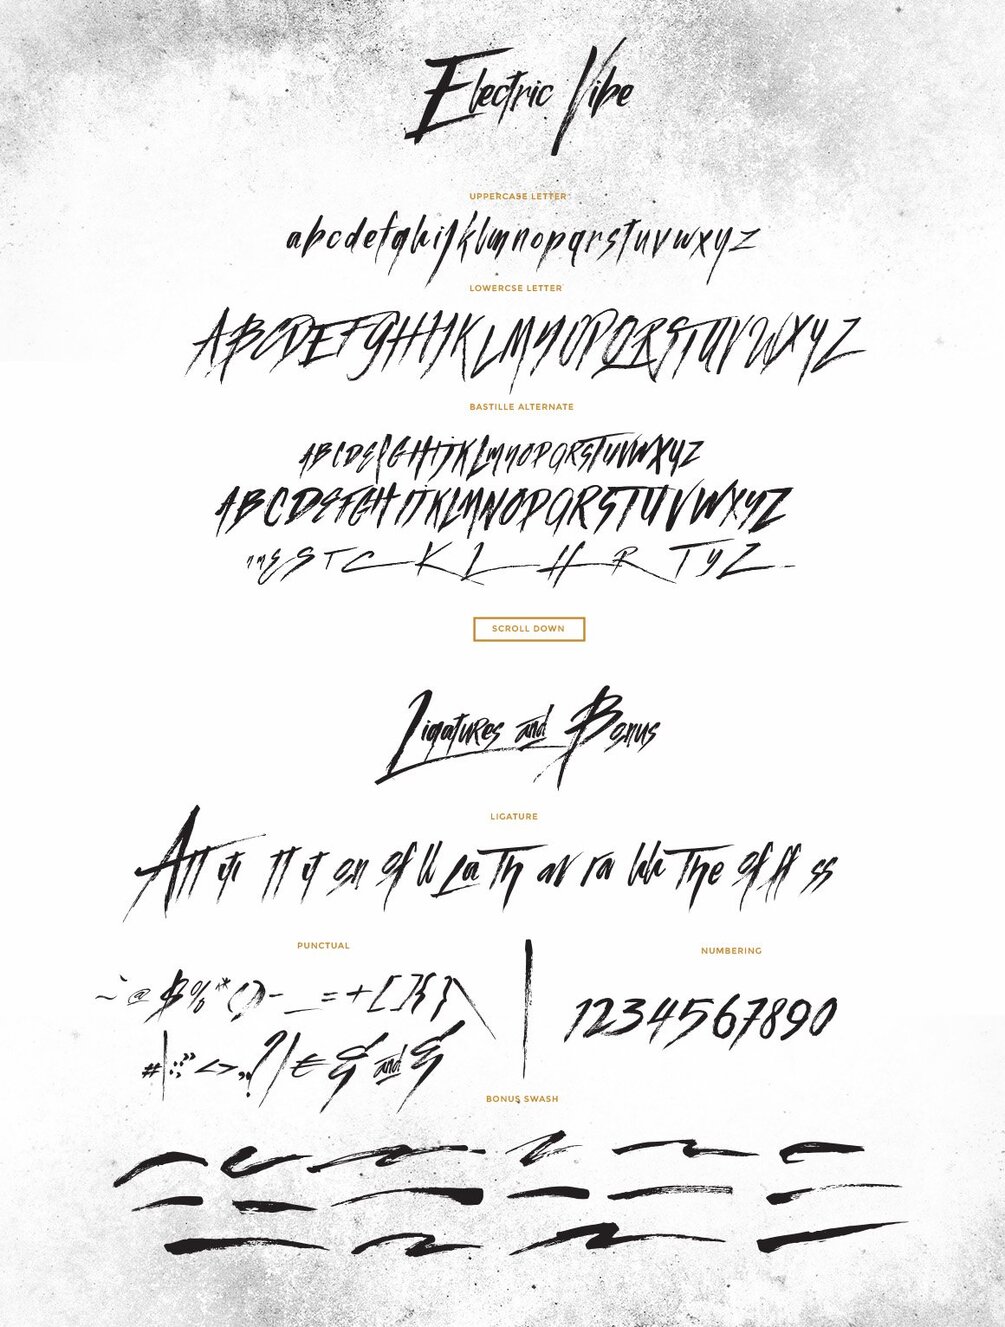 Electric Vibe
UPPERCASE LETTER
abcdefghijklmnopqrstuvwxyz
LOWERCSE LETTER
ABCDEFGHIJKLMNOPQRSTUVWXYZ
BASTILLE ALTERNATE
ABCDEFGHIJKLMNOPQRSTUVWXYZ
ABCDEFGHIJKLMNOPQRSTUVWXYZ
EST C K L H R T y Z
SCROLL DOWN
Ligatures and Bonus
LIGATURE
Att iti tt it on of ll La Th av ra bb The of ff ss
PUNCTUAL
NUMBERING
~`@$%^*()-_=+[]{}\
1234567890
#|:;"<>,.?/€& and &
BONUS SWASH